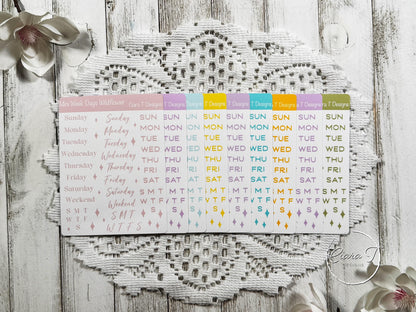 Week Days Wildflower
Ciara T Designs
T Designs
T Designs
T Designs
T Designs
T Designs
T Designs
T Designs
Sunday Sunday SUN SUN SUN SUN SUN SUN SUN SUN SUN
Monday Monday MON MON MON MON MON MON MON MON MON
Tuesday Tuesday TUE TUE TUE TUE TUE TUE TUE TUE TUE
Wednesday Wednesday WED WED WED WED WED WED WED WED WED
Thursday Thursday THU THU THU THU THU THU THU THU THU
Friday Friday FRI FRI FRI FRI FRI FRI FRI FRI FRI
Saturday Saturday SAT SAT SAT SAT SAT SAT SAT SAT SAT
Weekend Weekend S M T M T M T M T M T M T M T M T S M T
S M T S M T W T F T F T F T F T F T F T F T F W T F
W T F S S S S S S S S S
Ciara T